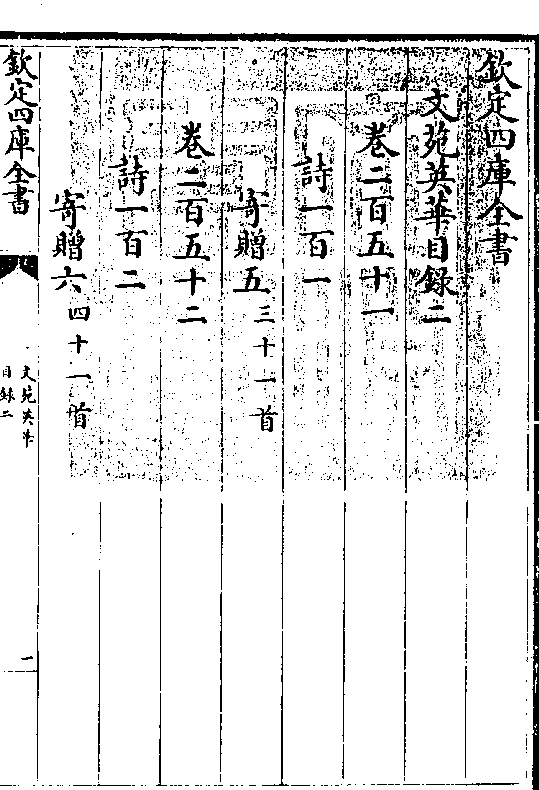 欽定四庫全書
文苑英華目録二
卷二百五十一
詩一百一
寄贈五三十一首
卷二百五十二
詩一百二
寄贈六四十一首
欽定四庫全書
文苑英華
目録二
一